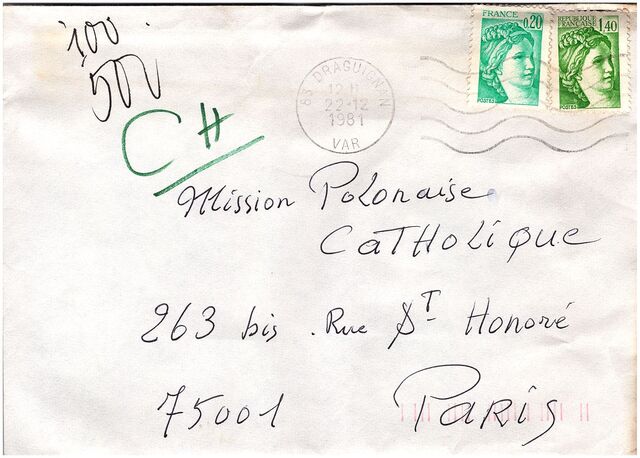 100
500
CH
83 DRAGUIGNAN
12 H
22-12
1981
VAR
FRANCE
0,20
POSTES
REPUBLIQUE
FRANÇAISE
1,40
POSTES
Mission Polonaise
CATHOLIQUE
263 bis Rue ST Honoré
75001 PARIS